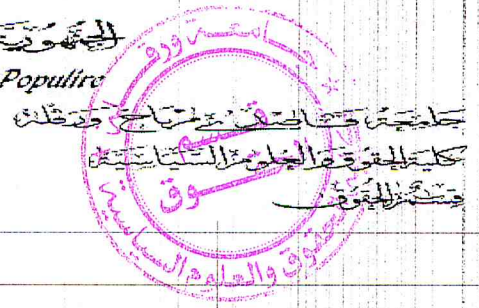 الجمهورية
Populire
جامعة قاصدي مرباح ورقلة
كلية الحقوق والعلوم السياسية
قسم الحقوق
جامعة ورق
قسم
حقوق والعلوم السياسية